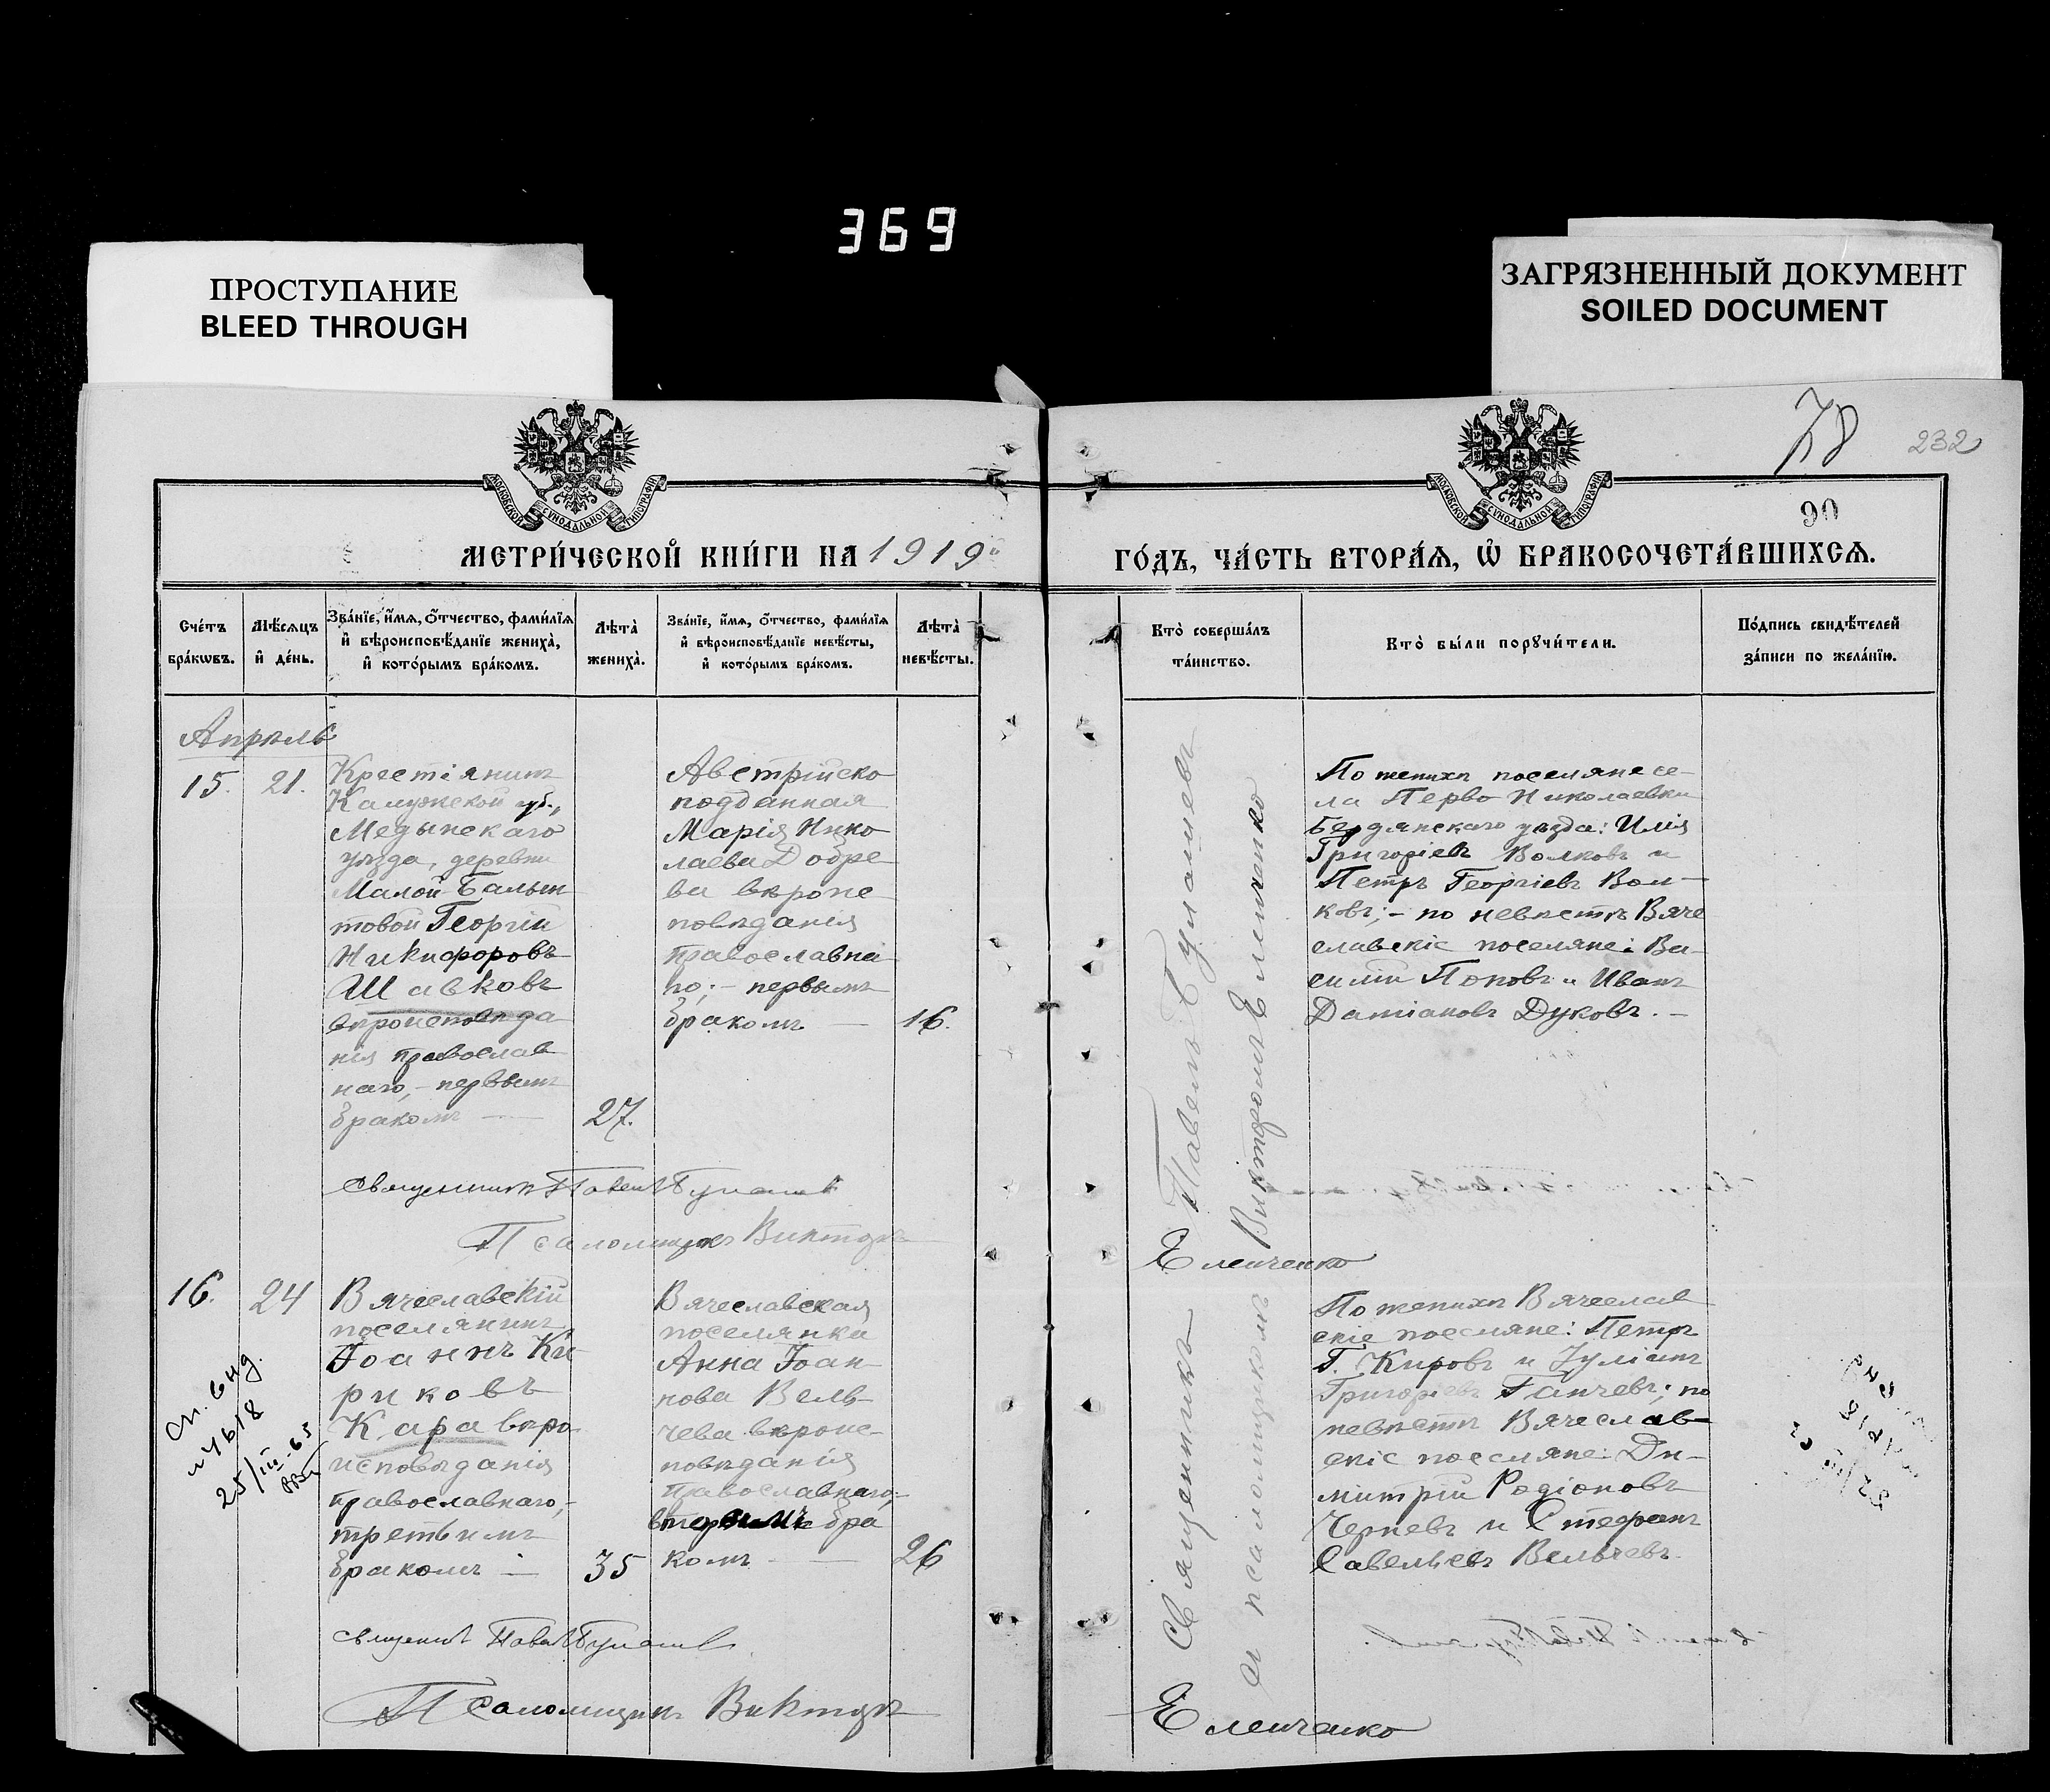 369
ПРОСТУПАНИЕ
BLEED THROUGH
ЗАГРЯЗНЕННЫЙ ДОКУМЕНТ
SOILED DOCUMENT
78
232
90
МОСКОВСКОЙ СУНОДАЛЬНОЙ ТИПОГРАФІИ
МОСКОВСКОЙ СУНОДАЛЬНОЙ ТИПОГРАФІИ
МЕТРИ́ЧЕСКОЙ КНИ́ГИ НА 1919й
ГО́ДЪ, ЧА́СТЬ ВТОРА́Ѧ, Ѡ҆ БРАКОСОЧЕТА́ВШИХСѦ.
Сче́тъ бра́кѡвъ.
Мѣ́сѧцъ и҆ де́нь.
Зва́нїе, и҆́мѧ, о҆́тчество, фами́лїѧ и҆ вѣроисповѣ́данїе жениха̀, и҆ кото́рымъ бра́комъ.
Лѣ́та̀ жениха̀.
Зва́нїе, и҆́мѧ, о҆́тчество, фами́лїѧ и҆ вѣроисповѣ́данїе невѣ́сты, и҆ кото́рымъ бра́комъ.
Лѣ́та̀ невѣ́сты.
Кто̀ соверша́лъ та́инство.
Кто̀ бы́ли порꙋчи́тели.
По́дпись свидѣ́телей за́писи по жела́нїю.
Апрѣль
15.
21.
Крестіянинъ
Калужской губ.,
Медынскаго
уѣзда, деревни
Малой-
товой Георгій
Никифоровъ
Шавковъ
вѣроисповѣда
нія православ
наго, - первымъ
бракомъ —
27.
Австрійско
подданная
Марія Нико
лаева Добре
ва вѣроис
повѣданія
православна
го; - первымъ
бракомъ —
16.
По женихѣ поселяне се-
ла Перво Николаевки
Бердянскаго уѣзда: Илія
Григоріевъ Волковъ и
Петръ Георгіевъ Вол-
ковъ; - по невѣстѣ Вяче
славскіе поселяне: Ва-
силій Поповъ и Иванъ
Даміановъ Дуковъ. -
Священникъ Павелъ
Псаломщикъ Викторъ
Еленченко
16.
24
Вячеславскій
поселянинъ
Іоаннъ Ки-
риковъ
Кара вѣро
исповѣданія
православнаго, -
третьимъ
бракомъ —
35
Вячеславская
поселянка
Анна Іоан
нова Вель-
чева вѣроис-
повѣданія
православнаго; -
вторымъ бра
комъ —
26
По женихѣ Вячеслав
скіе поселяне: Петръ
Г. Кировъ и Іуліанъ
Григоріевъ Ганчевъ; по
невѣстѣ Вячеслав-
скіе поселяне: Ди-
митрій Родіоновъ
Черневъ и Стефанъ
Савельевъ Вельчевъ.
Священникъ Павелъ
и псаломщикомъ Викторомъ Еленченко
25/III-65
Священникъ Павелъ
Псаломщикъ Викторъ
Еленченко